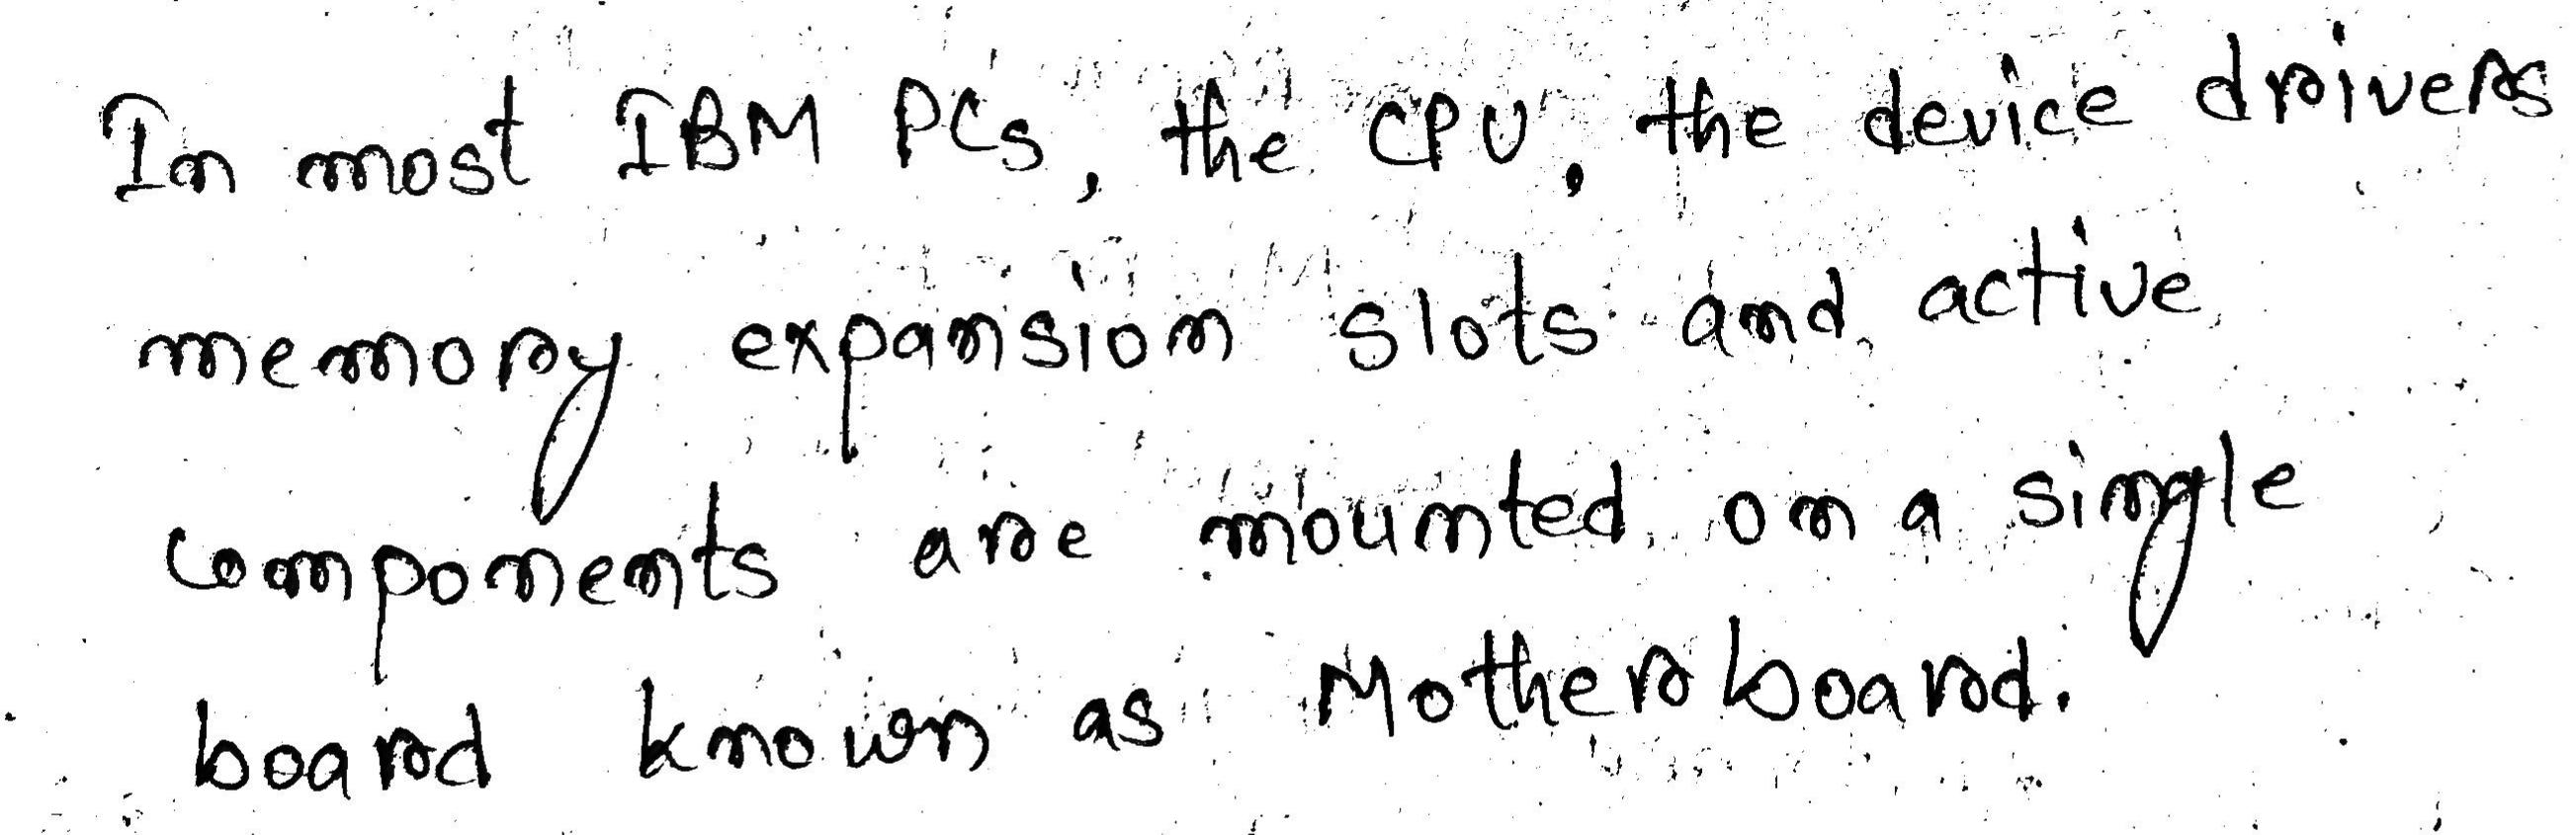 In most IBM PCs, the CPU, the device drivers
memory expansion slots and active
components are mounted on a single
board known as Motherboard.